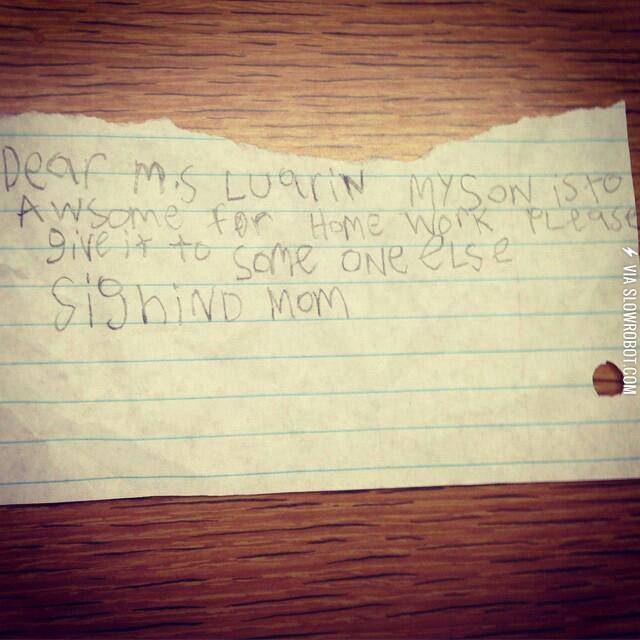 Dear M.S LuarIN MY SON is to
AWsome for Home Work PLease
give it to some one eLse
SighIND MOM
VIA SLOWROBOT.COM